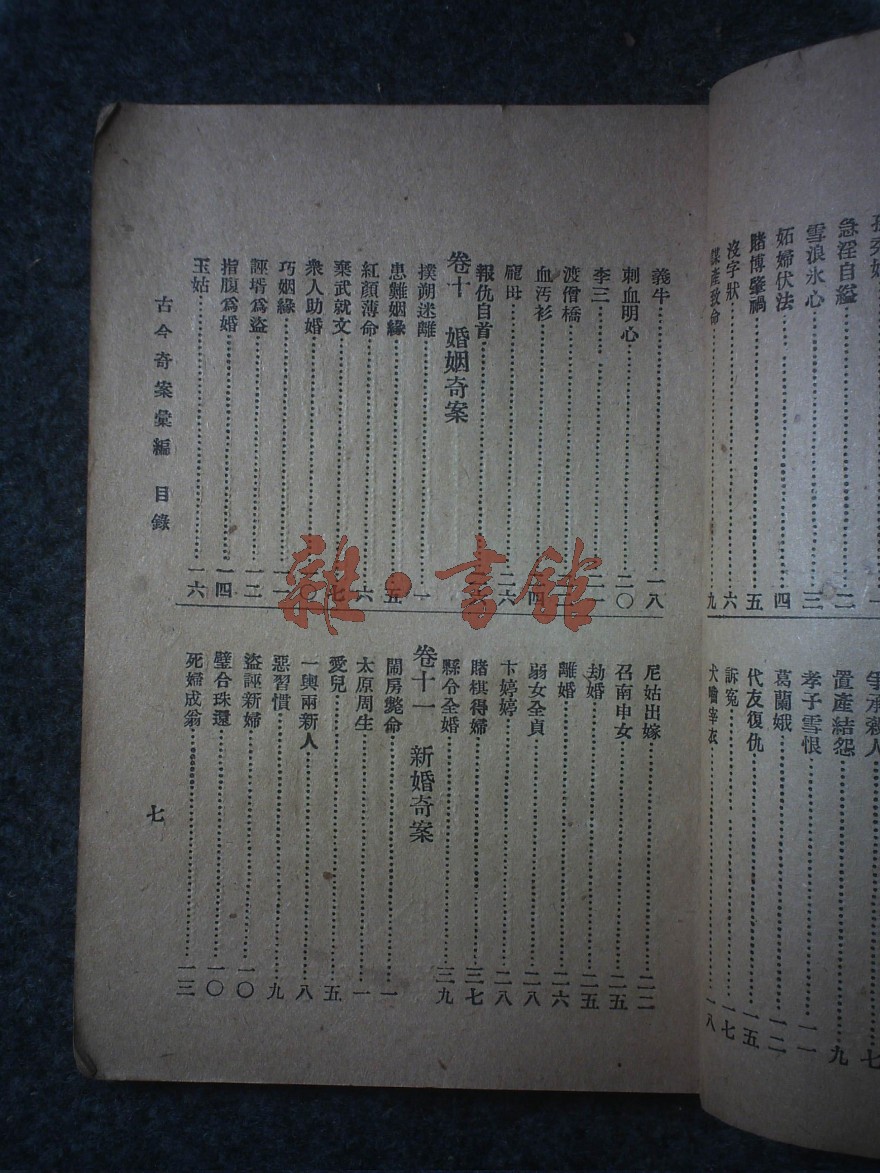 急淫自縊……二
雪浪氷心……三
妬婦伏法……四
賭博肇禍……五
沒字狀……六
謀產致命……九
爭承殺人……七
置產結怨……九
孝子雪恨……一一
葛蘭娥……一二
代友復仇……一五
訴冤……一七
義牛……一八
刺血明心……二〇
李三……二一
渡僧橋
血汚衫
龐母……二六
報仇自首
卷十　婚姻奇案
撲朔迷離……一
患難姻緣……五
紅顏薄命……六
棄武就文……七
衆人助婚
巧姻緣
誣壻爲盜……一二
指腹爲婚……一四
玉姑……一六
尼姑出嫁……二二
召南申女……二五
劫婚……二五
離婚……二六
弱女全貞……二八
卞婷婷……二八
賭棋得婦……三七
縣令全婚……三九
卷十一　新婚奇案
鬧房斃命……一
太原周生……一
愛兒……五
一輿兩新人……八
惡習慣……九
盜誣新婦……一〇
璧合珠還……一〇
死婦成翁……一三
古今奇案彙編　目錄
七
雜·書館